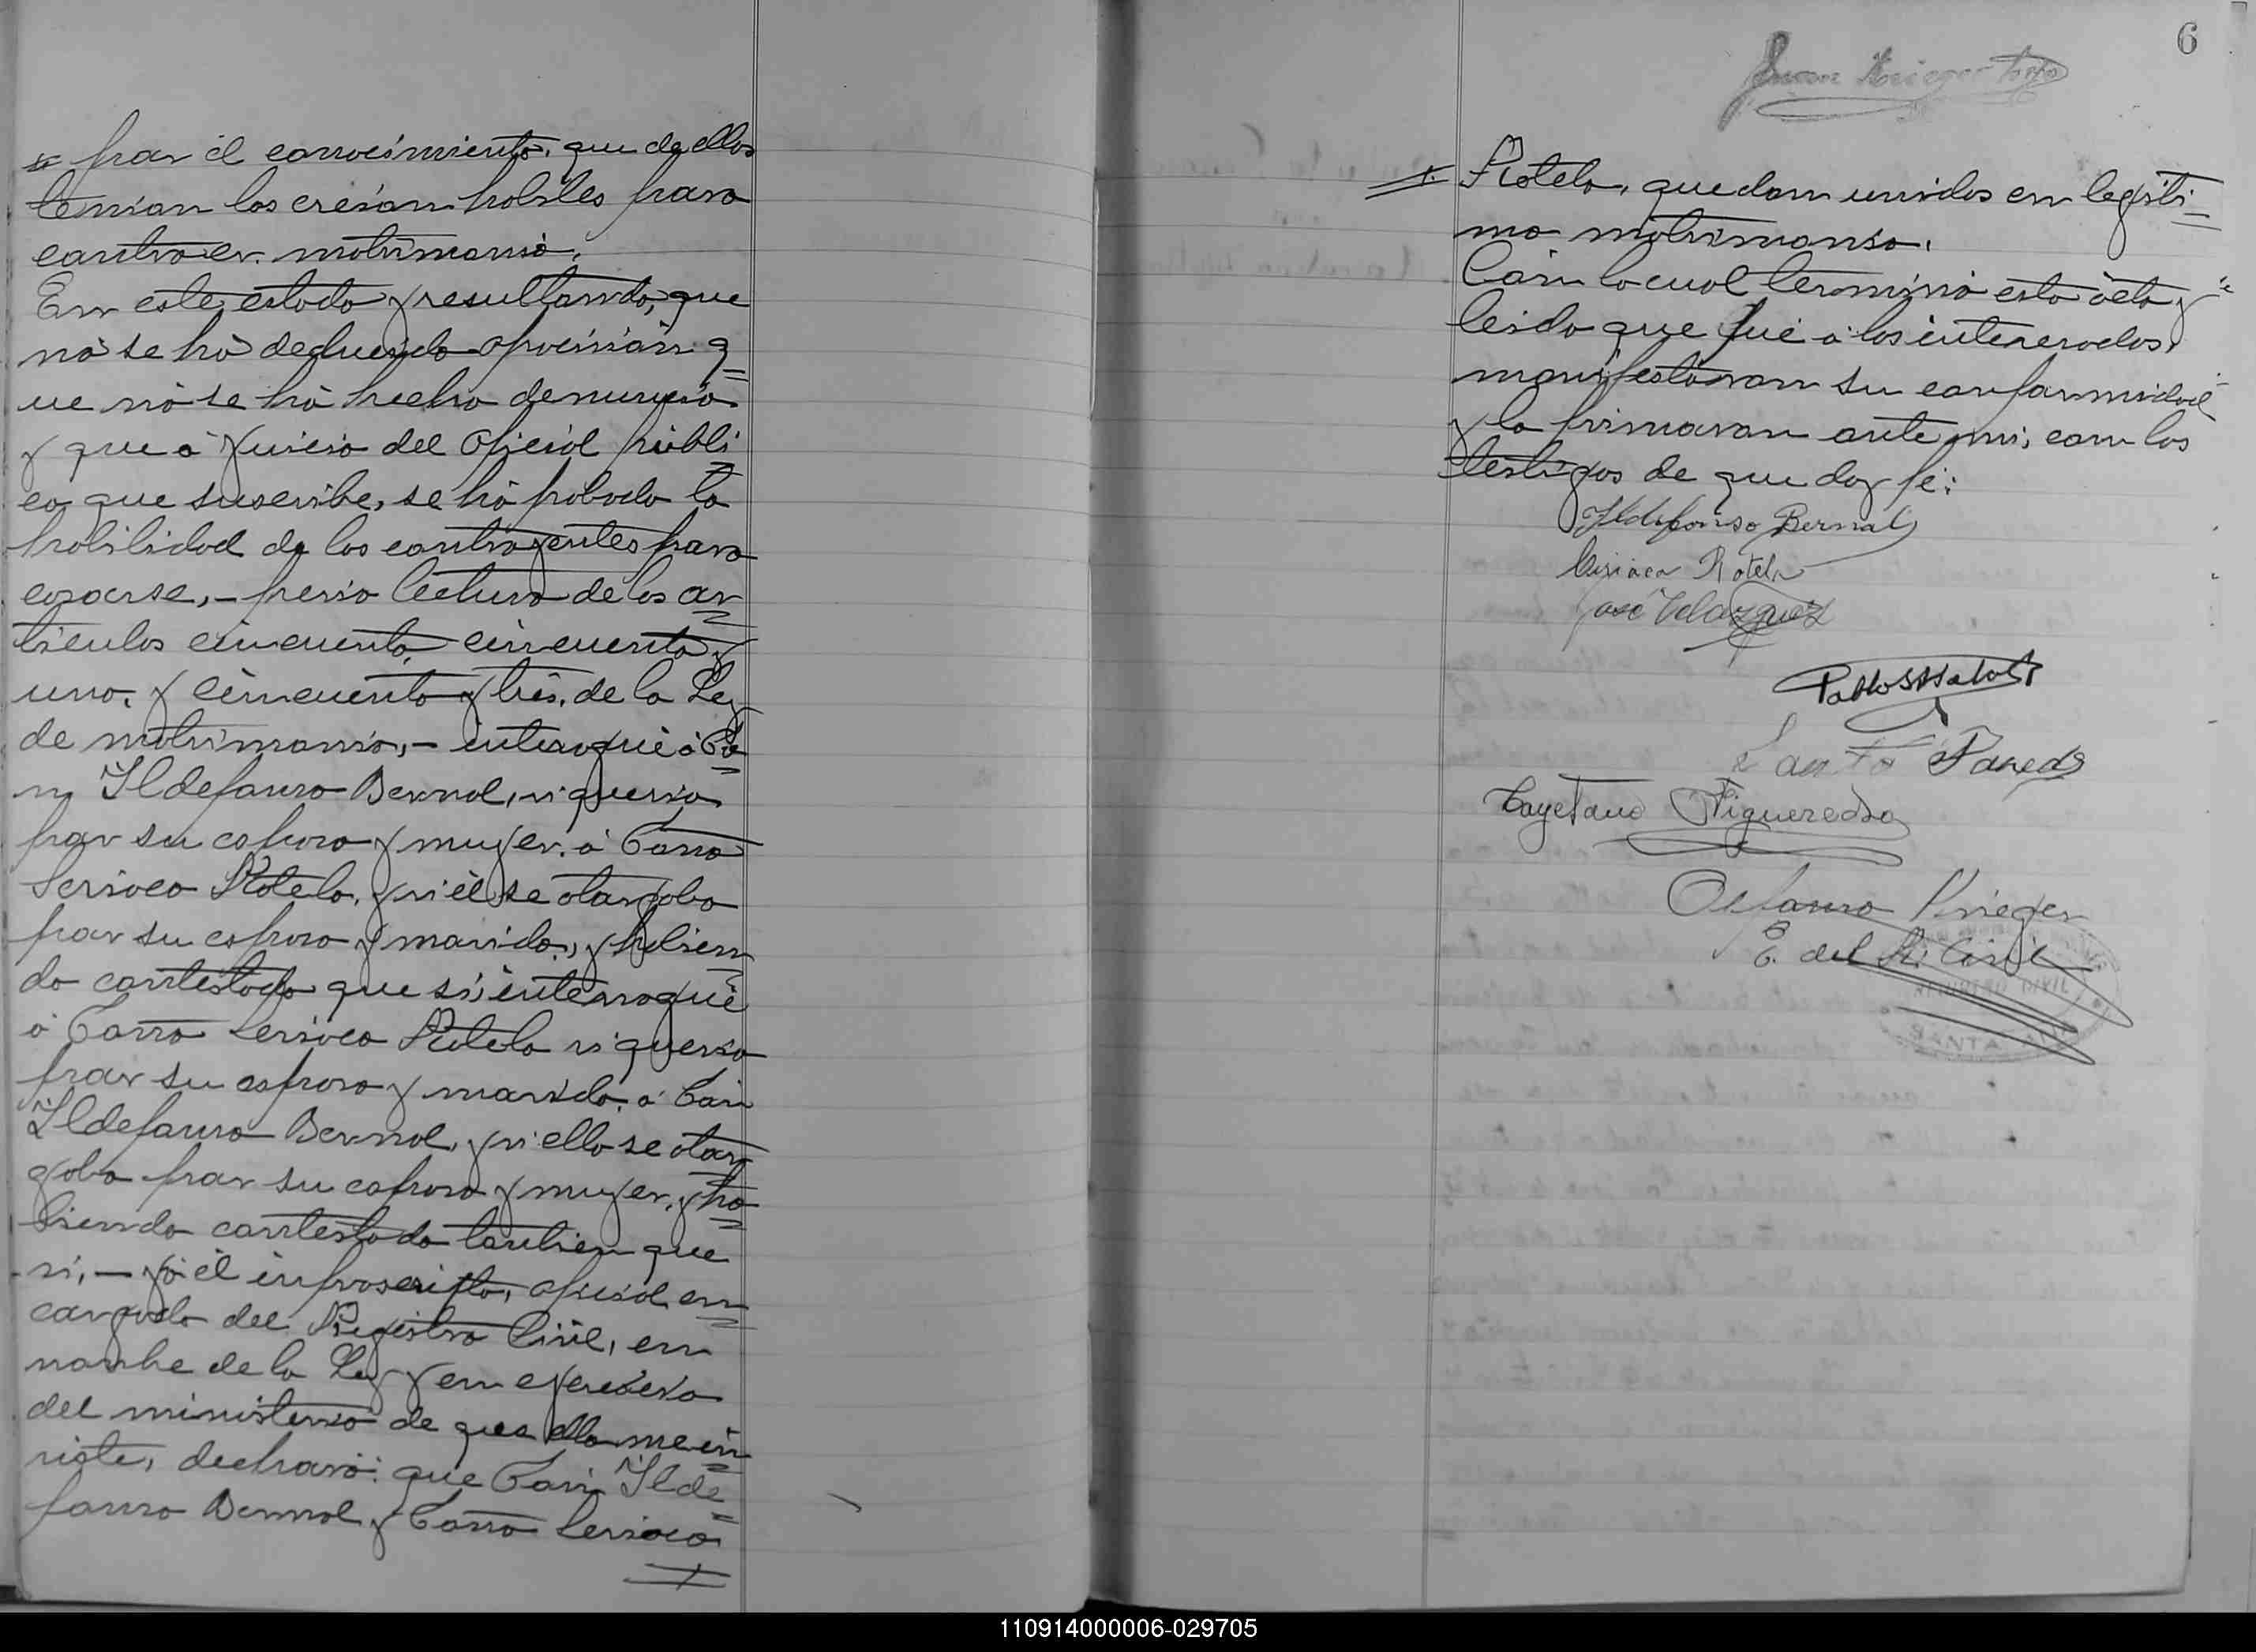 por el conocimiento, que de ellos
tenian los creian habiles para
contraer matrimonio.
En este estado y resultando, que
nó se há deducido oposición q
ue nó se há hecho denuncia
y que á juicio del oficial públi
co que suscribe, se há probado la
habilidad de los contrayentes para
casarse, - previo lectura de los ar
tículos cincuenta, cincuenta y
uno, y cincuenta y trés, de la Ley
de matrimonio, - interogué á Do
n Ildefonso Bernal, si queria
por su esposa y mujer, á Doña
Seriaca Rotela, y si él se otorgaba
por su esposo y marido, y habien
do contestado que sí, interrogué
á Doña Seriaca Rotela si queria
por su esposo y marido, á Don
Ildefonso Bernal, y si ella se otor
gaba por su esposa y mujer, y ha
biendo contestado tanbien que
si, — yó él infroscripto, oficial en
cargado del Registro Civil, en
nonbre de la Ley y en ejercicio
del ministerio de que ella me in
viste, declaro: que Don Ilde
fonso Bernal y Doña Seriaca
6
Juan Krieger
Rotela, quedan unidos en legíti
mo matrimonio.
Con lo cual terminó esta ácta y
leida que fué á los interesados,
manifestáron su conformidad
y la firmaron ante mi, con los
testigos de que doy fé:
Ildefonso Bernal
Ciriaca Rotela
José Velazquez
Cayetano Figueredo
Krieger
E. del R. Civil
REGISTRO CIVIL
SANTA
110914000006-029705